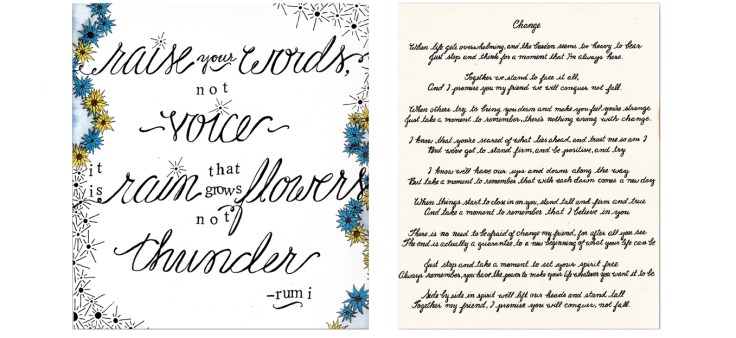 raise your words,
not
voice
it is rain that grows flowers
not
thunder
-rumi
Change
When life gets overwhelming, and the burden seems to heavy to bear
Just stop and think for a moment that I'm always here.
Together we stand to face it all,
And I promise you my friend we will conquer not fall.
When others try to bring you down and make you feel you're strange
Just take a moment to remember, there's nothing wrong with change.
I know that you're scared of what lies ahead, and trust me so am I
But we've got to stand firm, and be positive, and try
I know will have our ups and downs along the way
But take a moment to remember that with each dawn comes a new day
When things start to close in on you, stand tall and firm and true
And take a moment to remember that I believe in you
There is no need to be afraid of change my friend, for after all you see
The end is actually a guarantee, to a new beginning of what your life can be
Just stop and take a moment to set your spirit free
Always remember, you have the power to make your life whatever you want it to be
Side by side in spirit will lift our heads and stand tall
Together my friend, I promise you will conquer, not fall.